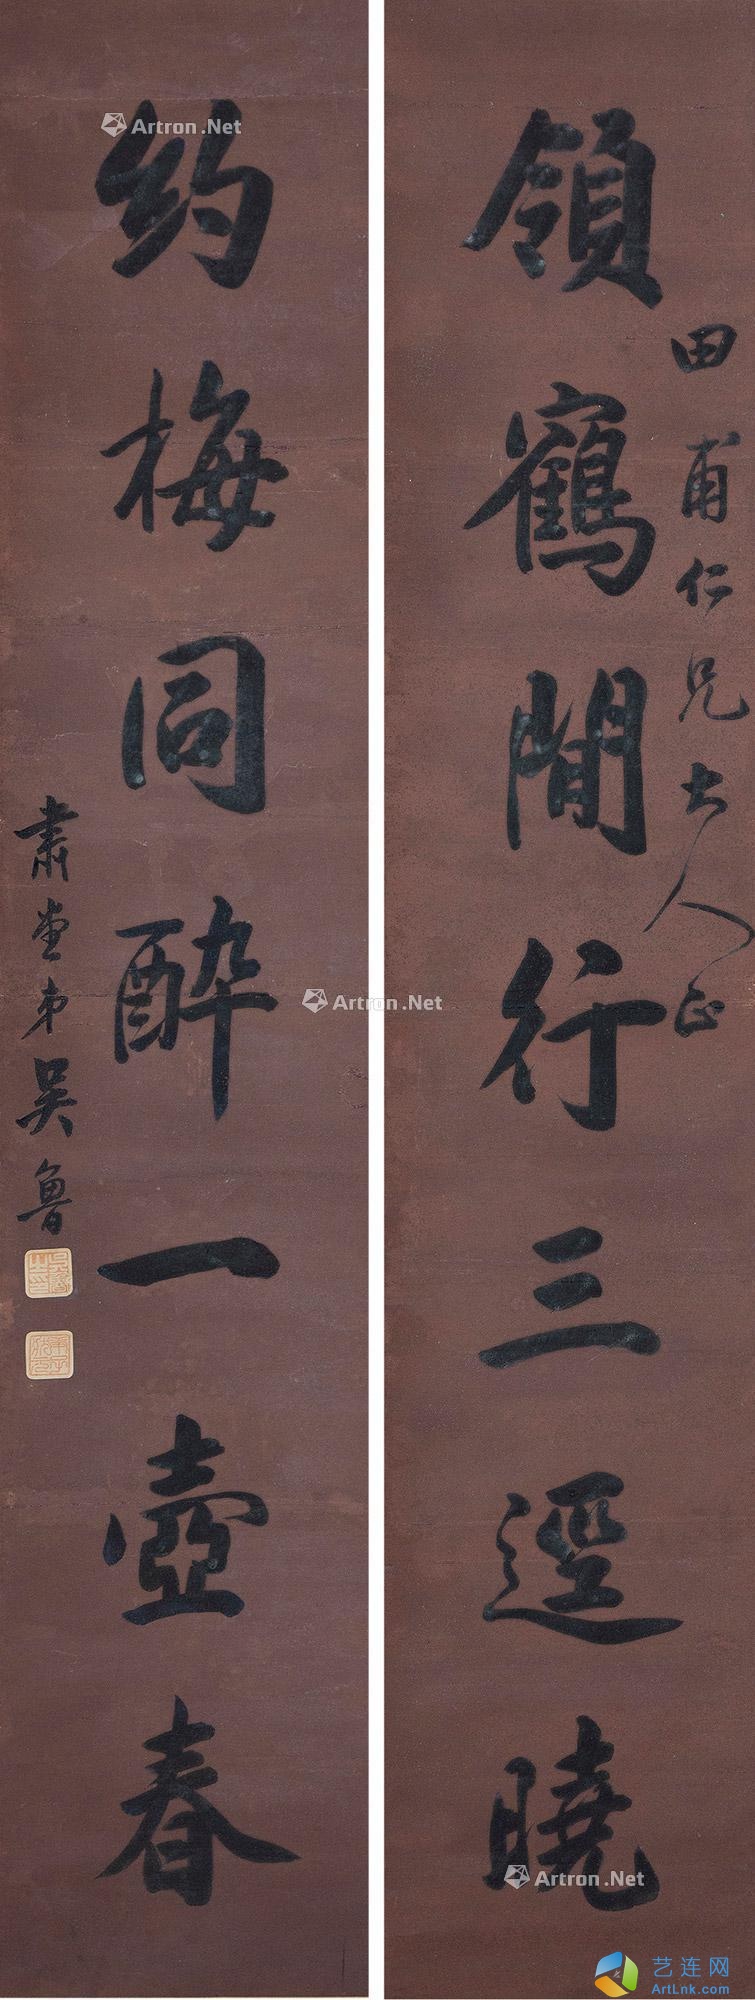 領鶴閒行三逕曉
田甫仁兄大人正
約梅同醉一壺春
肅堂弟吳魯
Artron.Net
Artron.Net
Artron.Net
艺连网
ArtLnk.com